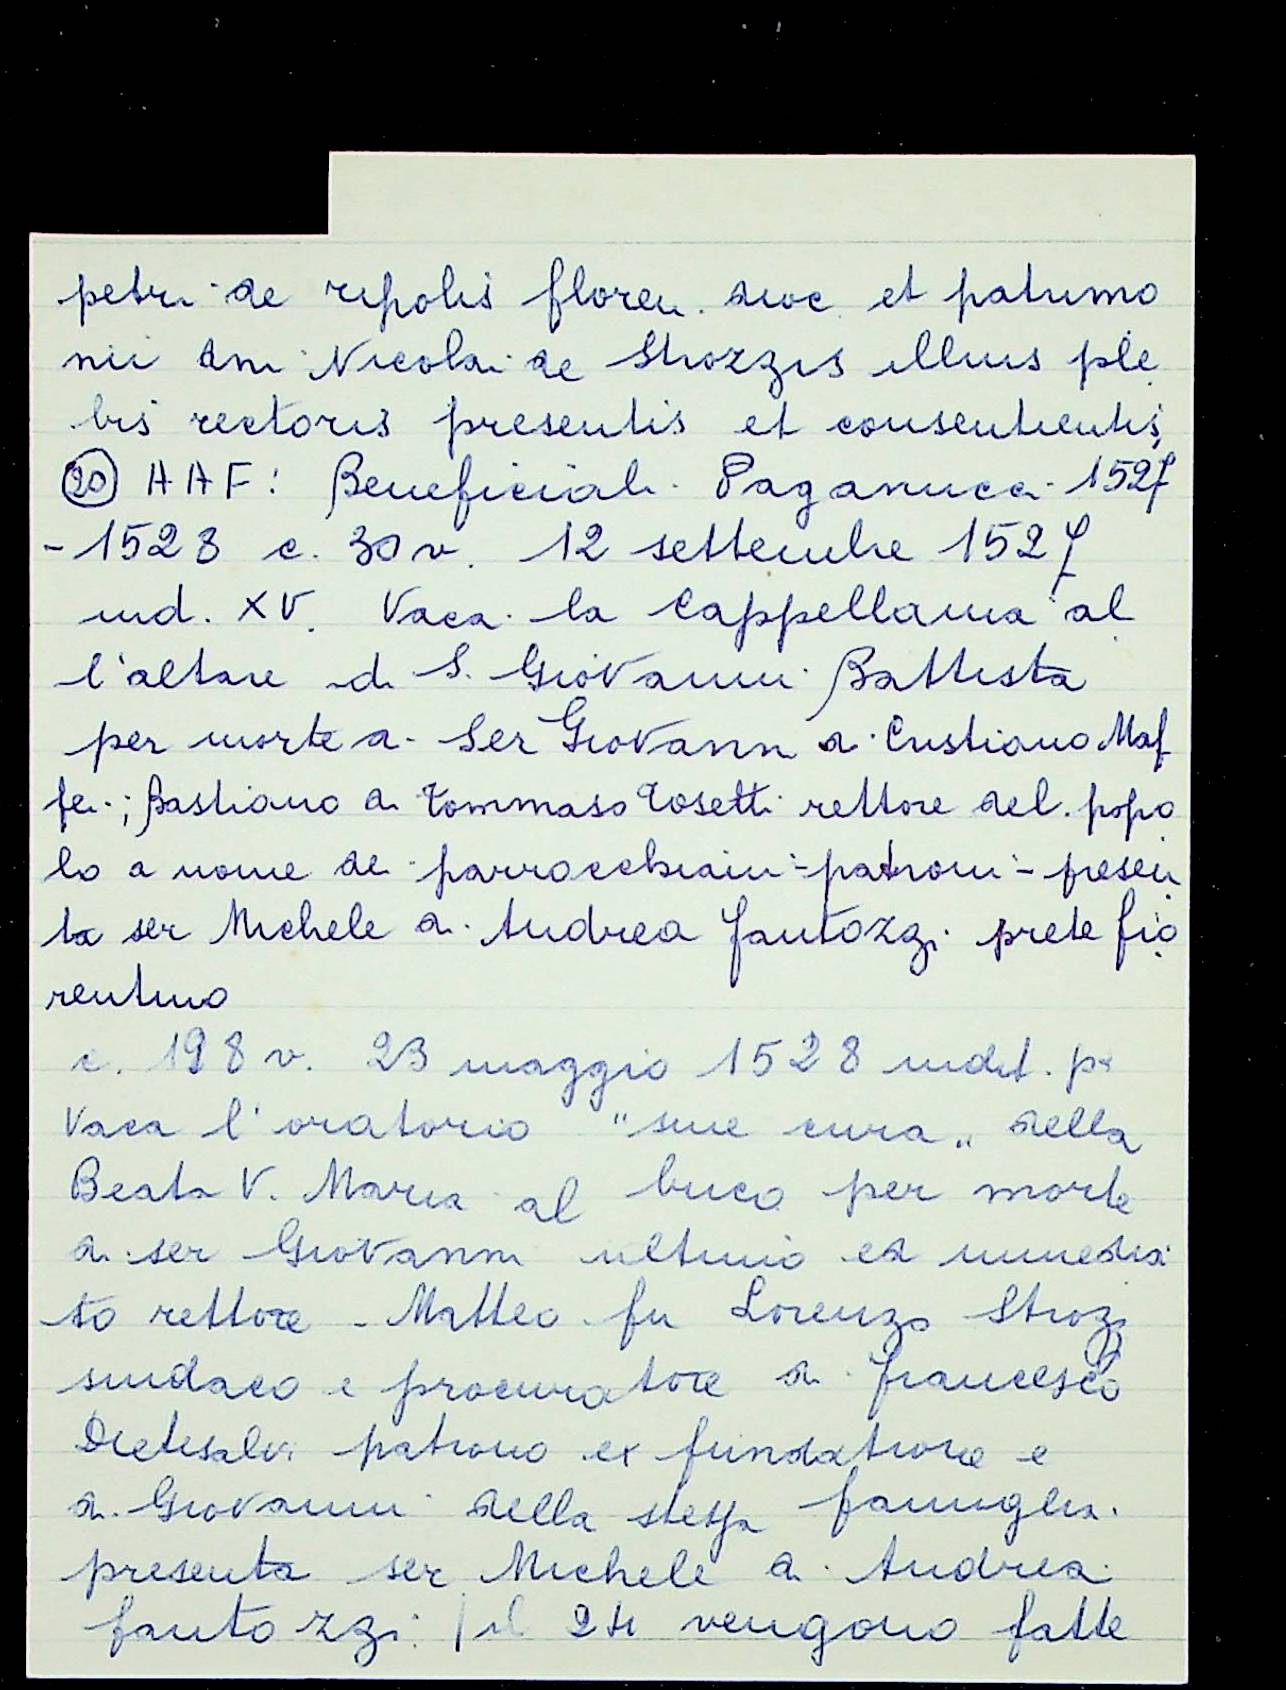 petri de ripolis floren. dioc. et patrimo
nii dni Nicolai de Strozzis illius ple
bis rectoris presentis et consentientis
(20) AAF: Beneficiali Paganucci 1527
-1528 c. 30v. 12 settembre 1527
ind. XV. Vaca la Cappellania al
l'altare di S. Giovanni Battista
per morte di Ser Giovanni di Cristiano Maf
fei; Bastiano di Tommaso Tosetti rettore del popo
lo a nome dei parrocchiani - patroni - presen
ta ser Michele di Andrea Fantozzi prete fio
rentino
c. 198 v. 23 maggio 1528 indit. pa
Vaca l'oratorio "sine cura" della
Beata V. Maria al buco per morte
di ser Giovanni ultimo ed immedia
to rettore - Matteo fu Lorenzo Strozzi
sindaco e procuratore di Francesco
Dietisalvi patrono ex fundatione e
di Giovanni della stessa famiglia
presenta ser Michele di Andrea
Fantozzi. | il 24 vengono fatte